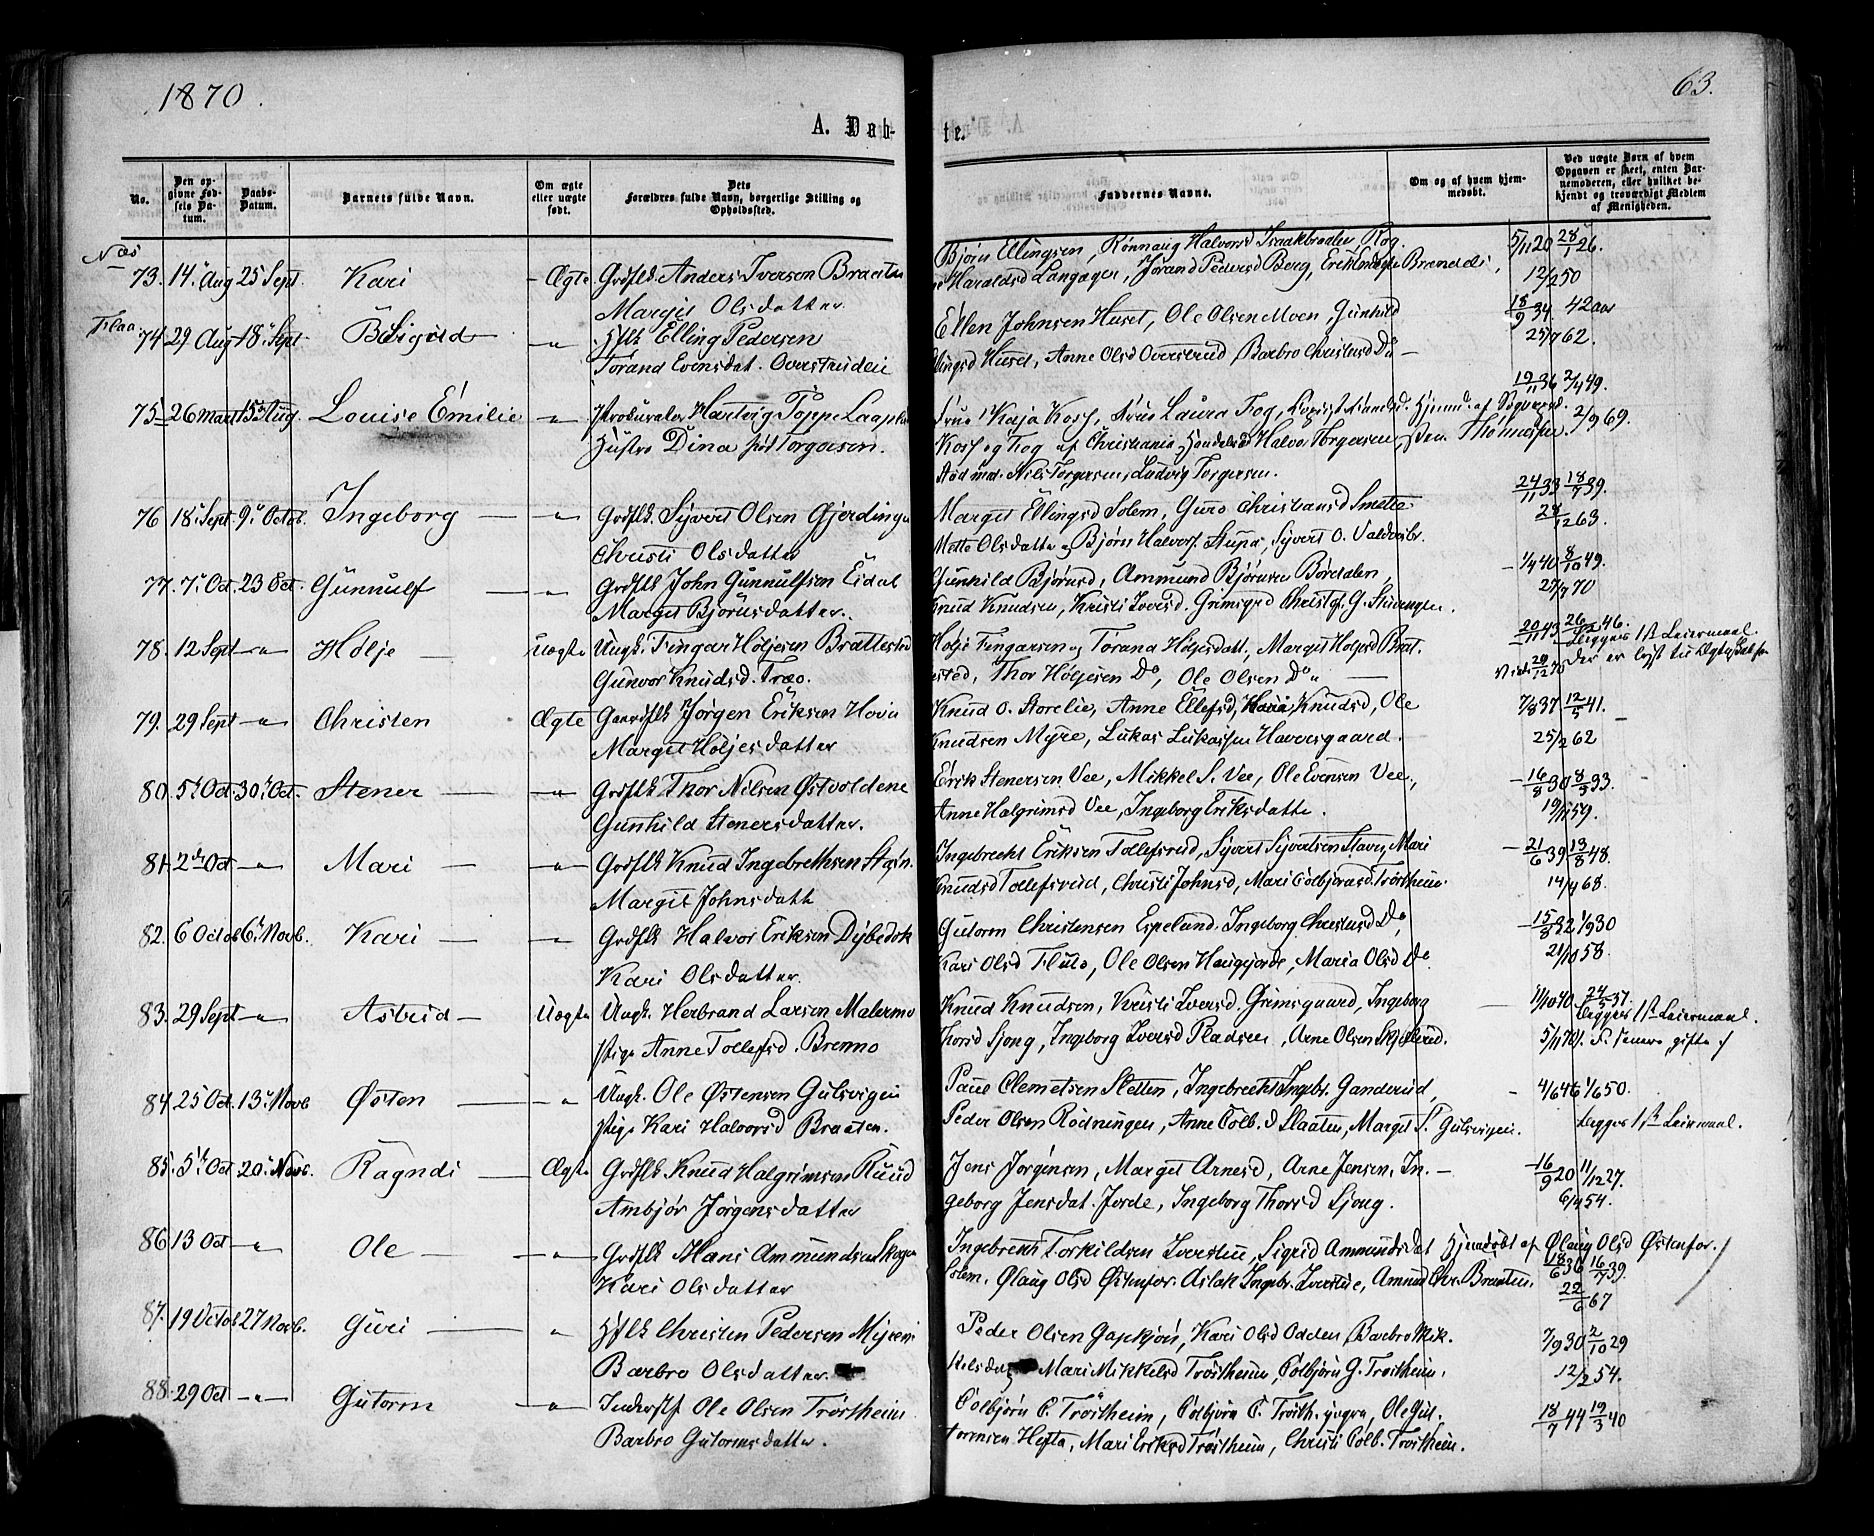 1870.
63.
A. Døb-
te.
No.
Den op-
givne Fød-
sels Da-
tum.
Daabs-
Datum.
Barnets fulde Navn.
Om ægte
eller uægte
født.
Dets
Forældres fulde Navn, borgerlige Stilling og
Opholdssted.
Faddernes Navne.
Om og af hvem hjem-
medøbt.
Ved uægte Børn af hvem
Opgaven er skeet, enten Bar-
nemoderen, eller hvilket be-
kjendt og troværdigt Medlem
af Menigheden.
Næs
73. 14. Aug 25 Sept. Kari Ægte Grdflk. Anders Iversen Braaten
Margit Olsdatter
Bjørn Ellingsen, Rønnaug Halvorsd Isaakbraaten, Rog.
Haraldsd Langager, Jørand Pedersd Berg, Erik 5/11 20 28/1 26.
12/2 50
Flaa. 74 29 Aug 18 Sept Sigrid — " — Hflk Elling Pedersen
Torand Evensdat. Overstrudeie
Ellen Johnsen Huset, Ole Olsen Moen, Gunhild
Ellingsd Huset, Anne Olsd Overstrud Barbro Christensd Do — 18/9 34. 42 aar
25/7 62.
75 26 Marts 15 Aug. Louise Emilie — " — Prokurator Hartvig Toppe
Hustro Dina født Torgersen.
Frue Kaja Koss, Frue Laura Fog, Hjemmd. af 19/11 36 2/4 49.
Koss og Fog af Christiania, Handelsmd Halvor Torgersen, Sten Thomesen 2/9 69.
Nils Torgersen, Ludvig Torgersen.
76 18 Sept 9 Octob. Ingeborg — " — Grdflk. Syvert Olsen Gjerdingen
Christi Olsdatter
Margit Ellingsd Solem, Guro Christiansd Smette
Mette Olsdatter og Bjørn Halvors. Stupa, Syvert O. Valdersbr. 24/11 33 18/7 39.
28/12 63.
77. 7 Oct. 23 Oct. Gunnulf — " — Grdflk John Gunnulfsen Eidal
Margit Bjørnsdatter.
Gunhild Bjørnsd, Ammund Bjørnsen Børdalen,
Knud Knudsen, Kristi Iversd. Grimsgrd Christof. G. — 1/4 40 8/10 49.
27/7 70
78. 12 Sept — " — Holje — Uægte Ungk. Fingar Holjesen Brattested
Gunvor Knudsd. Træo.
Holje Fingarsen og Torand Holjesdatt, Margit Holjesd Brat-
tested, Thor Holjesen Do, Ole Olsen Do — 20/11 43 26/ 46.
Begges 1ste Leiermaal.
Der er lyst til Ægteskab
79. 29 Sept — " — Christen Ægte Gaardflk Jørgen Eriksen Hovn
Margit Holjesdatter
Knud O. Storelie, Anne Ellefsd, Knudsd, Ole
Knudsen Myre, Lukas Lukassen Haversgaard. 7/8 37 12/5 41.
25/2 62
80. 5 Oct 30 Oct. Stener — " — Grdflk Thor Nilsen Østvoldene
Gunhild Stenersdatter.
Erik Stenersen Vee, Mikkel S. Vee, Ole Evensen Vee,
Anne Halgrimsd Vee, Ingeborg Eriksdatter. 16/8 30 8/5 33.
19/11 59.
81. 2 Oct — " — Mari — " — Grdflk Knud Ingebrethsen
Margit Johnsdatt
Ingebrecht Eriksen Tollefsrud, Syvert Syvertsen Staven, Mari
Knudsd Tollefsrud, Christi Johnsd, Mari Colbjørnsd. Trøstheim. 21/6 39 13/8 48.
14/4 68.
82. 6 Octob 6 Novb. Kari — " — Grdflk Halvor Eriksen Dybedok
Kari Olsdatter.
Gutorm Christensen Espelund, Ingeborg Christensd Do,
Kari Olsd, Ole Olsen Haugejorde, Maria Olsd Do. 15/8 32 1/9 30
21/10 58.
83. 29 Sept — " — Astrid — Uægte Ungk. Herbrand Larsen Malermo
Pige Anne Tollefsd. Bremno
Knud Knudsen, Kristi Iversd. Grimsgaard, Ingeborg
Thorsd Sjong, Ingeborg Iversd Pladsen, Arne Olsen Skjellerud. 11/10 40 24/5 37.
Begges 1ste Leiermaal.
5/11 70 (F. senere gifte)
84. 25 Oct. 13 Novb Østen — " — Ungk. Ole Østensen Gulsvigen
Pige Kari Halvorsd Braaten.
Paul Clemetsen Sletten, Ingebrecht Ingebr. Ganderud,
Peder Olsen Rødningen, Anne Colb. D Slaatten, Margit T. Gulsvigen. 4/6 46 1/6 50.
Begges 1ste Leiermaal.
85. 5 Oct 20 Novb. Ragndi — Ægte Grdflk Knud Halgrimsen Ruud
Ambjør Jørgensdatter
Jens Jørgensen, Margit Arnesd, Arne Jensen, In-
geborg Jensdat. Jorde, Ingeborg Thorsd Sjong. 16/9 20 11/12 27.
6/4 54.
86. 13 Oct — " — Ole — " — Grdflk Hans Ammundsen Skogen
Kari Olsdatter
Ingebreth Torkildsen Iverslie, Sigrid Ammundsdat Hjemdøbt af Ølaug Olsd Østenfor.
Solem, Ølaug Olsd Østenfor. Aslak Ingebr. Iverslie, Amund Chr. Braaten. 18/6 36 16/7 39.
22/6 67
87. 19 Octob 27 Novb. Guri — " — Hflk Christen Pedersen Myren
Barbro Olsdatter.
Peder Olsen Gapkjøn, Kari Olsd Odden, Barbro Mik-
kelsdat Mari Mikkelsd Trøstheim, Colbjørn G. Trøstheim. 7/9 30 2/10 29
12/2 54.
88. 29 Oct — " — Gutorm — " — Inderst Ole Olsen Trøstheim
Barbro Gutormsdatter.
Colbjørn C. Trøstheim, Colbjørn C. Trøsth. yngre, Ole Gut-
tormsen Hefta, Mari Eriksd Trøstheim, Christi Colb. Trøstheim. 18/7 44 19/3 40